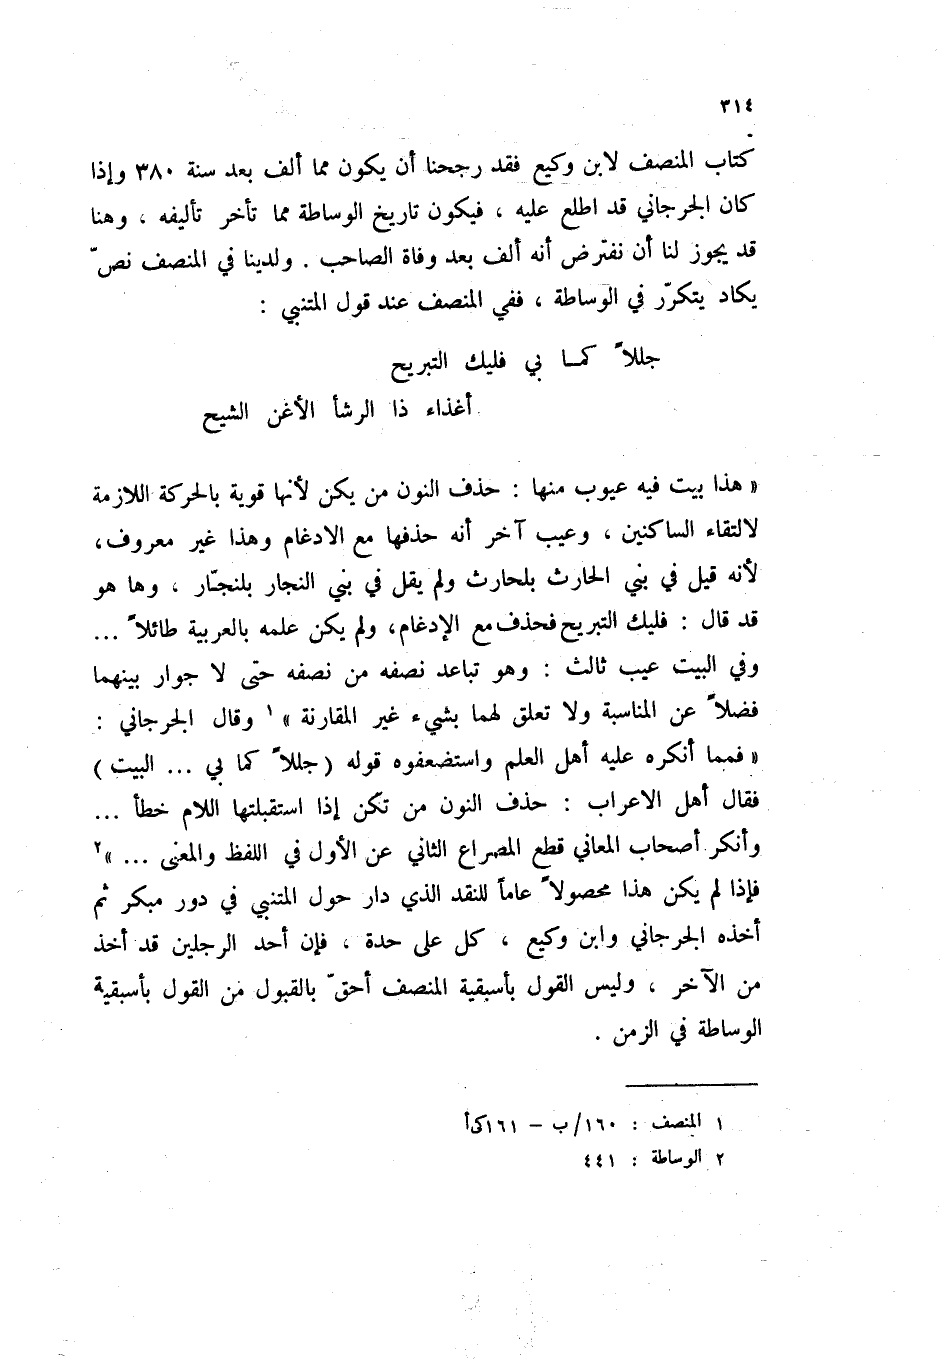 ٣١٤
كتاب المنصف لابن وكيع فقد رجحنا أن يكون مما ألف بعد سنة ٣٨٠ وإذا
كان الجرجاني قد اطلع عليه ، فيكون تاريخ الوساطة مما تأخر تأليفه ، وهنا
قد يجوز لنا أن نفترض أنه ألف بعد وفاة الصاحب . ولدينا في المنصف نصّ
يكاد يتكرّر في الوساطة ، ففي المنصف عند قول المتنبي :
جللاً كما بي فليك التبريح
أغذاء ذا الرشأ الأغن الشيح
« هذا بيت فيه عيوب منها : حذف النون من يكن لأنها قوية بالحركة اللازمة
لالتقاء الساكنين ، وعيب آخر أنه حذفها مع الادغام وهذا غير معروف،
لأنه قيل في بني الحارث بلحارث ولم يقل في بني النجار بلنجّار ، وها هو
قد قال : فليك التبريح فحذف مع الإدغام، ولم يكن علمه بالعربية طائلاً ...
وفي البيت عيب ثالث : وهو تباعد نصفه من نصفه حتى لا جوار بينهما
فضلاً عن المناسبة ولا تعلق لهما بشيء غير المقارنة » ١ وقال الجرجاني :
« فمما أنكره عليه أهل العلم واستضعفوه قوله (جللاً كما بي ... البيت)
فقال أهل الاعراب : حذف النون من تكن إذا استقبلتها اللام خطأ ...
وأنكر أصحاب المعاني قطع المصراع الثاني عن الأول في اللفظ والمعنى ... »٢
فإذا لم يكن هذا محصولاً عاماً للنقد الذي دار حول المتنبي في دور مبكر ثم
أخذه الجرجاني وابن وكيع ، كل على حدة ، فإن أحد الرجلين قد أخذ
من الآخر ، وليس القول بأسبقية المنصف أحقّ بالقبول من القول بأسبقية
الوساطة في الزمن .
١ المنصف : ١٦٠/ب – ١٦١
٢ الوساطة : ٤٤١